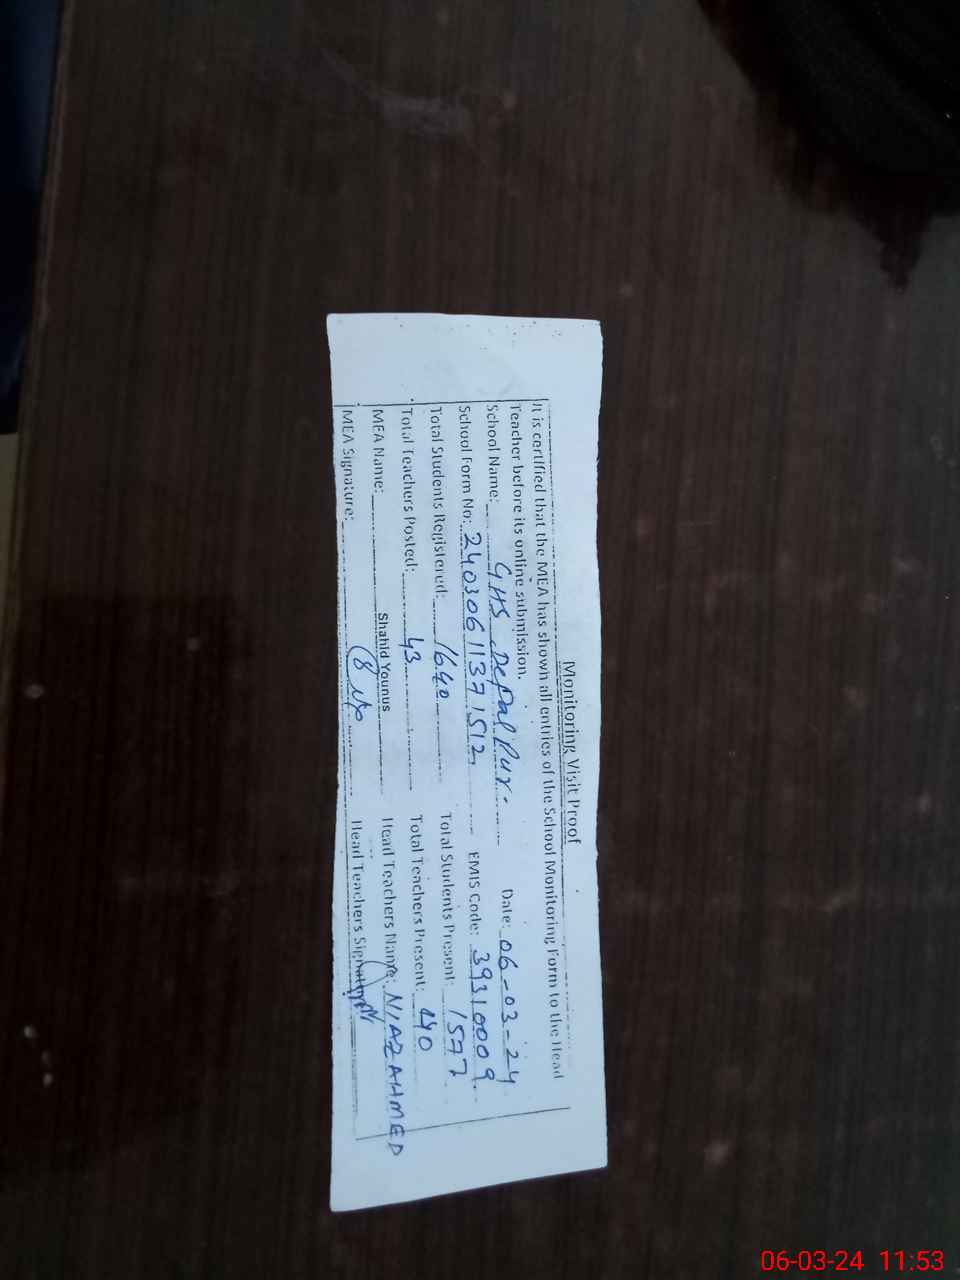 Monitoring Visit Proof
It is certified that the MEA has shown all entries of the School Monitoring Form to the Head
Teacher before its online submission.
School Name: GHS Depal Pur. Date: 06-03-24
School Form No: 2403061371512 EMIS Code: 39310009
Total Students Registered: 1640 Total Students Present: 1577
Total Teachers Posted: 43 Total Teachers Present: 40
MEA Name: Shahid Younus Head Teachers Name: NIAZ AHMED
MEA Signature: Head Teachers Signature:
06-03-24 11:53